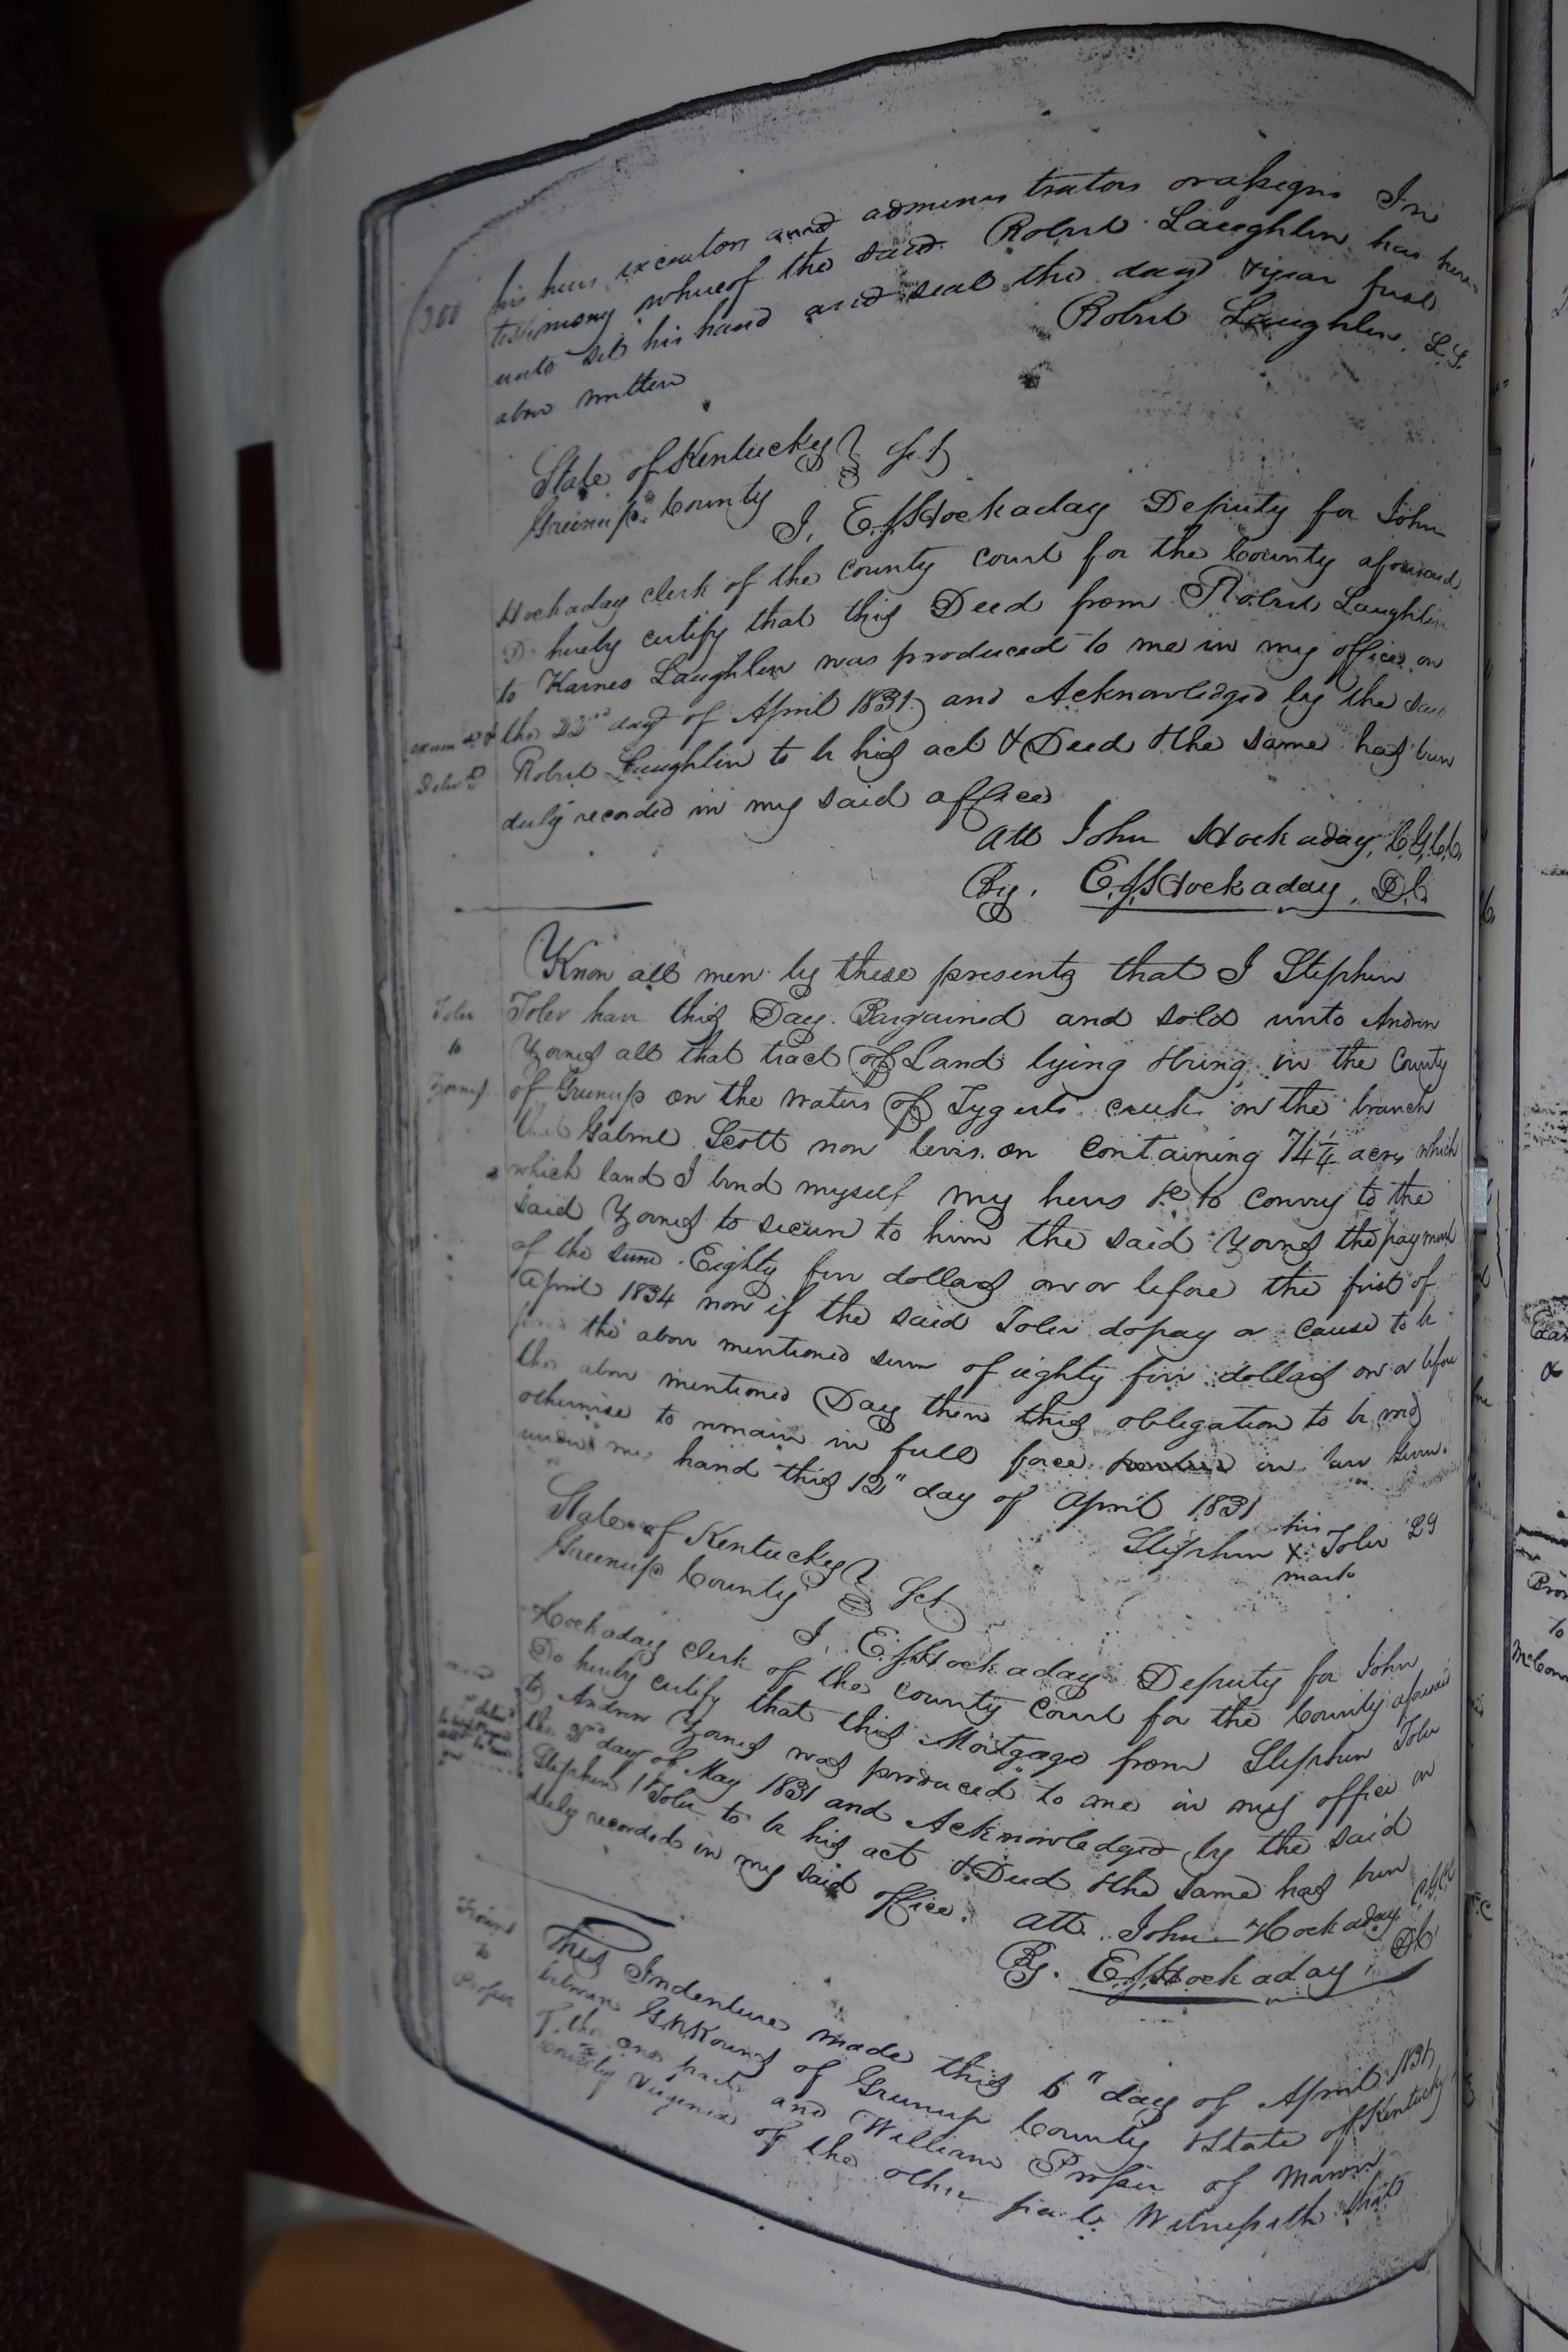 300
his heirs executors and adminis trators or assigns In
testimony whereof the said Robert Laughlin has here
unto set his hand and seal the day & year first
above written
Robert Laughlin. L.S.
State of Kentucky } Sct
Greenup County
I, E.J. Hockaday Deputy for John
Hockaday clerk of the county court for the County aforesaid
Do hereby certify that this Deed from Robert Laughlin
to Karnes Laughlin was produced to me in my office on
the 22nd day of April 1831 and Acknowledged by the said
Robert Laughlin to be his act & Deed & the same has been
duly recorded in my said office
Att John Hockaday, C.G.C.C.
By. E.J. Hockaday, D.C.
Know all men by these presents that I Stephen
Toler have this Day. Bargained and sold unto Andrew
Zornes all that tract of Land lying & being in the County
of Greenup on the waters of Tygerts creek on the branch
that Gabriel Scott now lives on containing 74 1/4 acres which
which land I bind myself my heirs &c to convey to the
said Zornes to secure to him the said Zornes the payment
of the sume Eighty five dollars on or before the first of
April 1834 now if the said Toler do pay or cause to be
paid the above mentioned sum of eighty five dollars on or before
the above mentioned Day then this obligation to be void
otherwise to remain in full force in
under my hand this 12" day of April 1831
Stephen his X mark Toler LS
State of Kentucky } Sct
Greenup County
I, E.J. Hockaday Deputy for John
Hockaday clerk of the county court for the County aforesaid
Do hereby certify that this Mortgage from Stephen Toler
to Andrew Zornes was produced to me in my office on
the 2nd day of May 1831 and Acknowledged by the said
Stephen Toler to be his act & Deed & the same has been
duly recorded in my said office.
Att. John Hockaday C.G.C.C.
By. E.J. Hockaday, DC
This Indenture made this 6" day of April 1831
between G.N. Kouns of Greenup County & State of Kentucky
of the one part and William Prosser of
County Virginia of the other part. Witnesseth that
Toler
to
Zornes
Kouns
to
Prosser